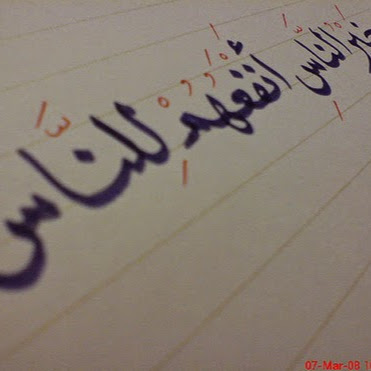 خير الناس أنفعهم للناس
07-Mar-08 1